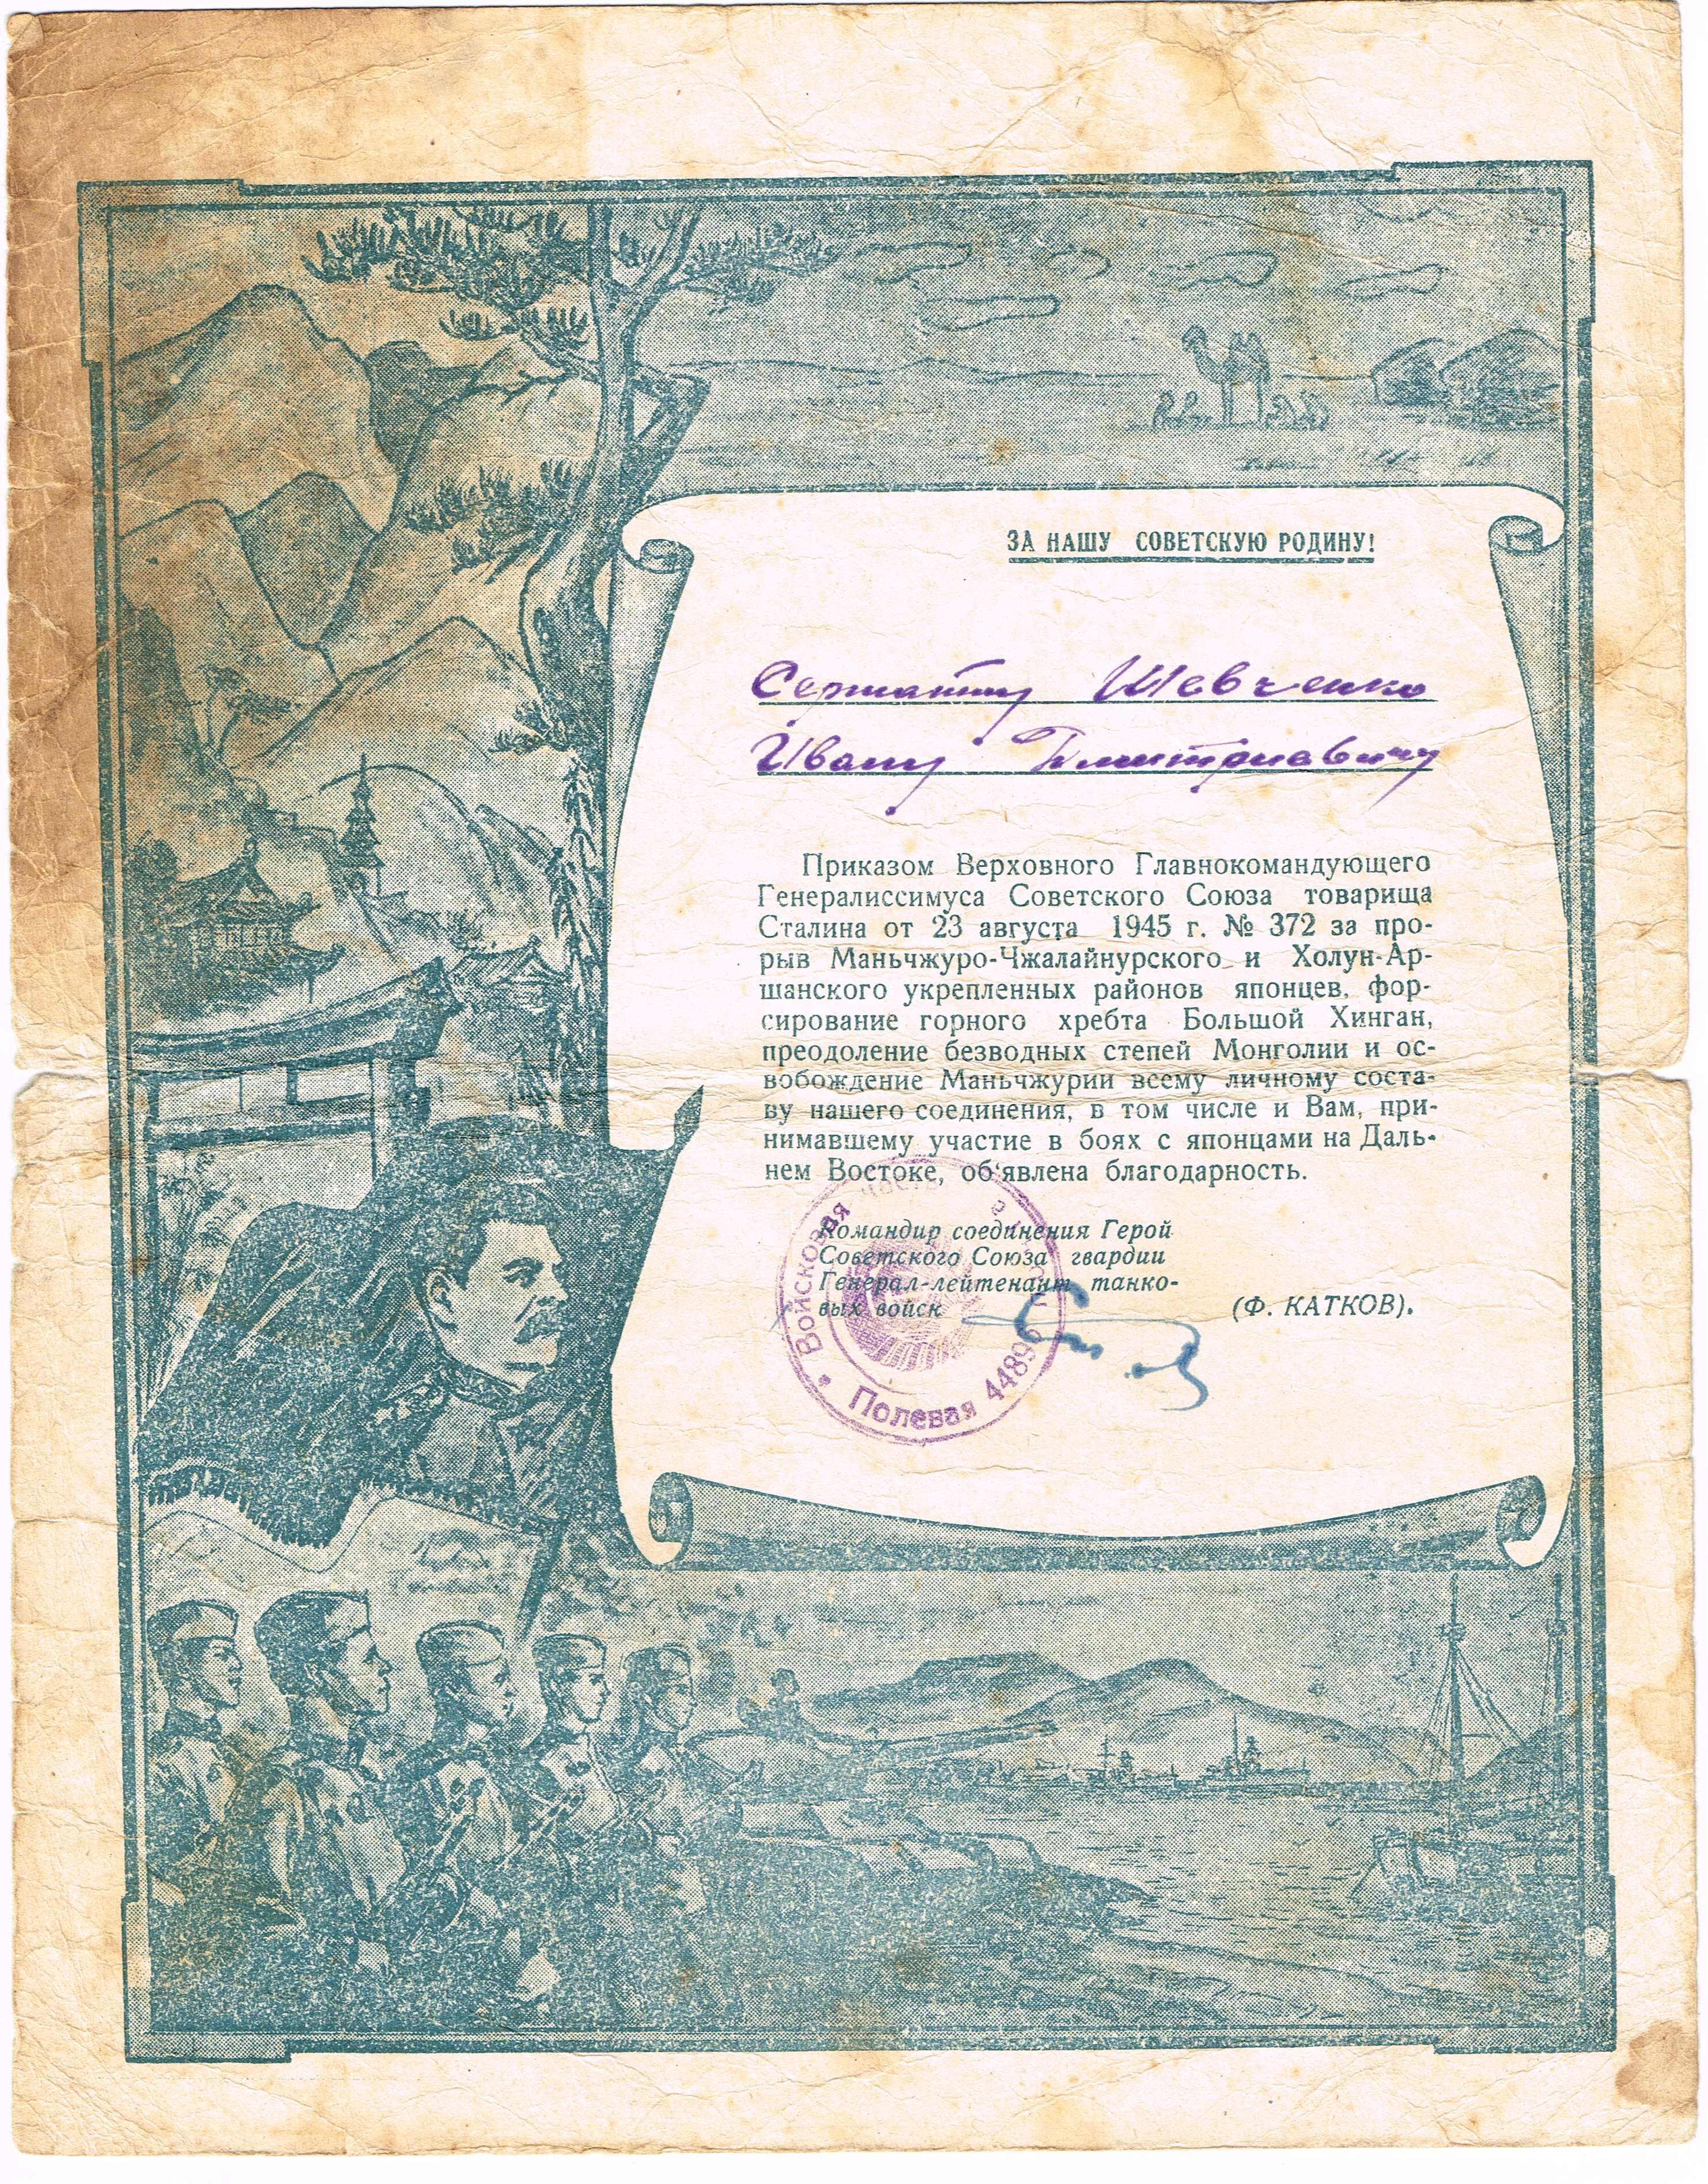 ЗА НАШУ СОВЕТСКУЮ РОДИНУ!
Сержанту Шевченко
Ивану Дмитриевичу
Приказом Верховного Главнокомандующего
Генералиссимуса Советского Союза товарища
Сталина от 23 августа 1945 г. № 372 за про-
рыв Маньчжуро-Чжалайнурского и Холун-Ар-
шанского укрепленных районов японцев, фор-
сирование горного хребта Большой Хинган,
преодоление безводных степей Монголии и ос-
вобождение Маньчжурии всему личному соста-
ву нашего соединения, в том числе и Вам, при-
нимавшему участие в боях с японцами на Даль-
нем Востоке, об'явлена благодарность.
Командир соединения Герой
Советского Союза гвардии
Генерал-лейтенант танко-
вых войск (Ф. КАТКОВ).
Войсковая часть
Полевая